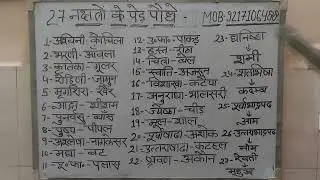 27 नक्षत्रों के पेड़ पौधे
1-अश्विनी-कोचिला
2-भरणी-आंवला
3-कृतिका-गूलर
4-रोहिणी-जामुन
5-मृगशिरा-खैर
6-आर्द्रा-शीशम
7-पुनर्वसु-बांस
8-पुष्य-पीपल
9-अश्लेषा-नागकेसर
10-मघा-बट
11-पू०फा०-पलास
12-उ०फा०-पाकड़
13-हस्त-रीठा
14-चित्रा-बेल
15-स्वाति-अर्जुन
16-विशाखा-कटैया
17-अनुराधा-भालसरी
18-ज्येष्ठा-चीड़
19-मूल-शाल
20-पूर्वाषाढ़ा-अशोक
21-उत्तराषाढ़ा-कटहल
22-श्रवण-अकौन
23-धनिष्ठा-
शमी
24-शतभिषा-
कदम्ब
25-पूर्वाभाद्रपद-
आम
26-उत्तराभाद्रपद-
नीम
27-रेवती-
महुआ